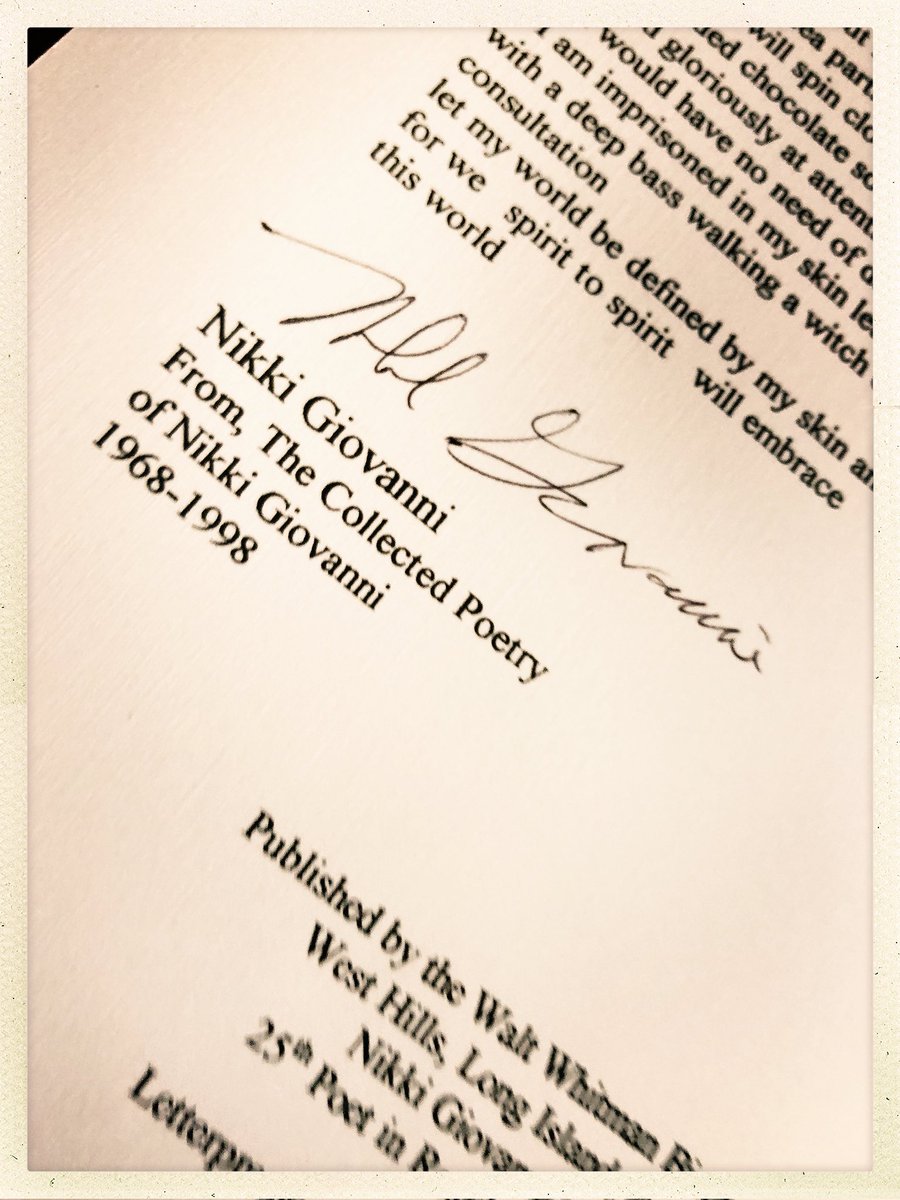 will spin
chocolate
gloriously at
would have no need of
am imprisoned in my skin
with a deep bass walking a witch
consultation
let my world be defined by my skin
for we spirit to spirit will embrace
this world
Nikki Giovanni
Nikki Giovanni
From, The Collected Poetry
of Nikki Giovanni
1968-1998
Published by the Walt Whitman
West Hills, Long Island
Nikki
25th Poet in